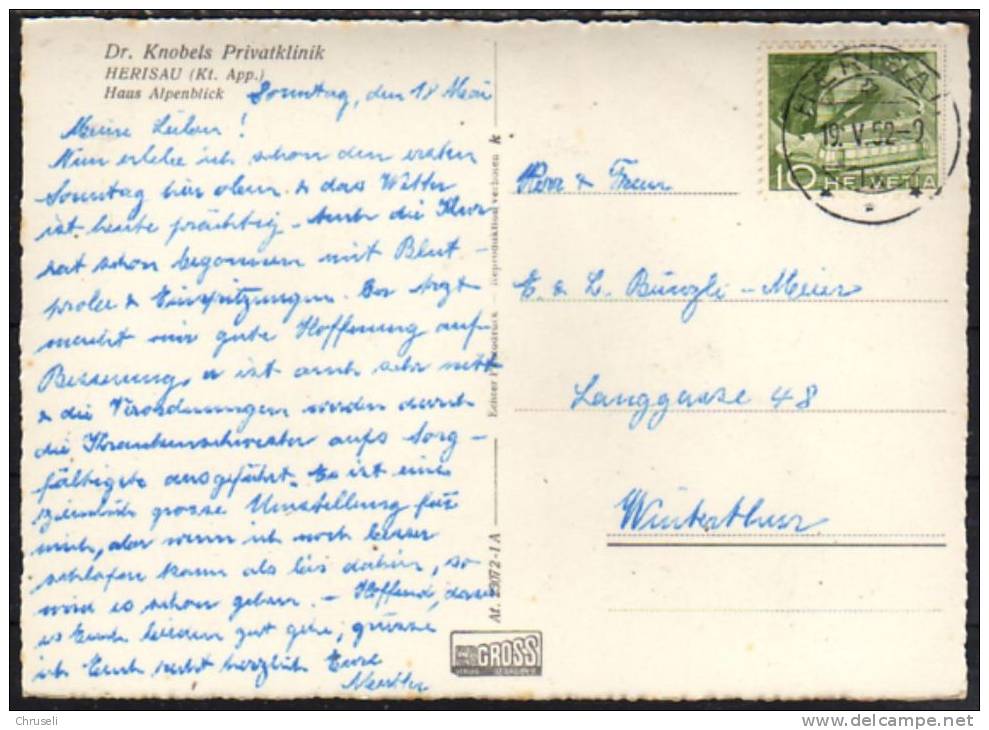 Dr. Knobels Privatklinik
HERISAU (Kt. App.)
Haus Alpenblick
Sonntag, den 18 Mai
Meine Lieben!
Nun erlebe ich schon den ersten
Sonntag hier oben & das Wetter
ist heute prächtig. Auch die Kur
hat schon begonnen mit Blut-
probe & Einspritzungen. Der Arzt
macht mir gute Hoffnung auf
Besserung, er ist auch sehr nett
& die Verordnungen werden durch
die Krankenschwester aufs Sorg-
fältigste ausgeführt. Es ist eine
ziemlich grosse Umstellung für
mich, aber wenn ich noch besser
schlafen kann als bis dahin, so
wird es schon gehen. – Hoffend, dass
es Euch beiden gut gehe, grüsse
ich Euch recht herzlich Eure
Echter Reproduktion verboten
Af. 23072-1A
GROSS
HERISAU
19. V. 52-9
10 HELVETIA
Herr & Frau
E. & L. Bünzli-Meier
Langgasse 48
Winterthur
Chruseli
www.delcampe.net